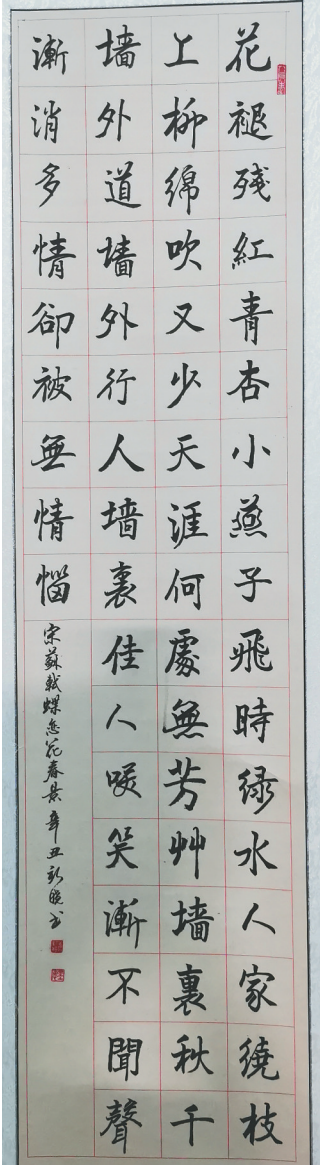 花褪残紅青杏小燕子飛時緑水人家繞枝
上柳綿吹又少天涯何處無芳艸墙裏秋千
墙外道墙外行人墙裏佳人咲笑漸不聞聲
漸消多情卻被無情惱
宋蘇軾蝶恋花春景辛丑书